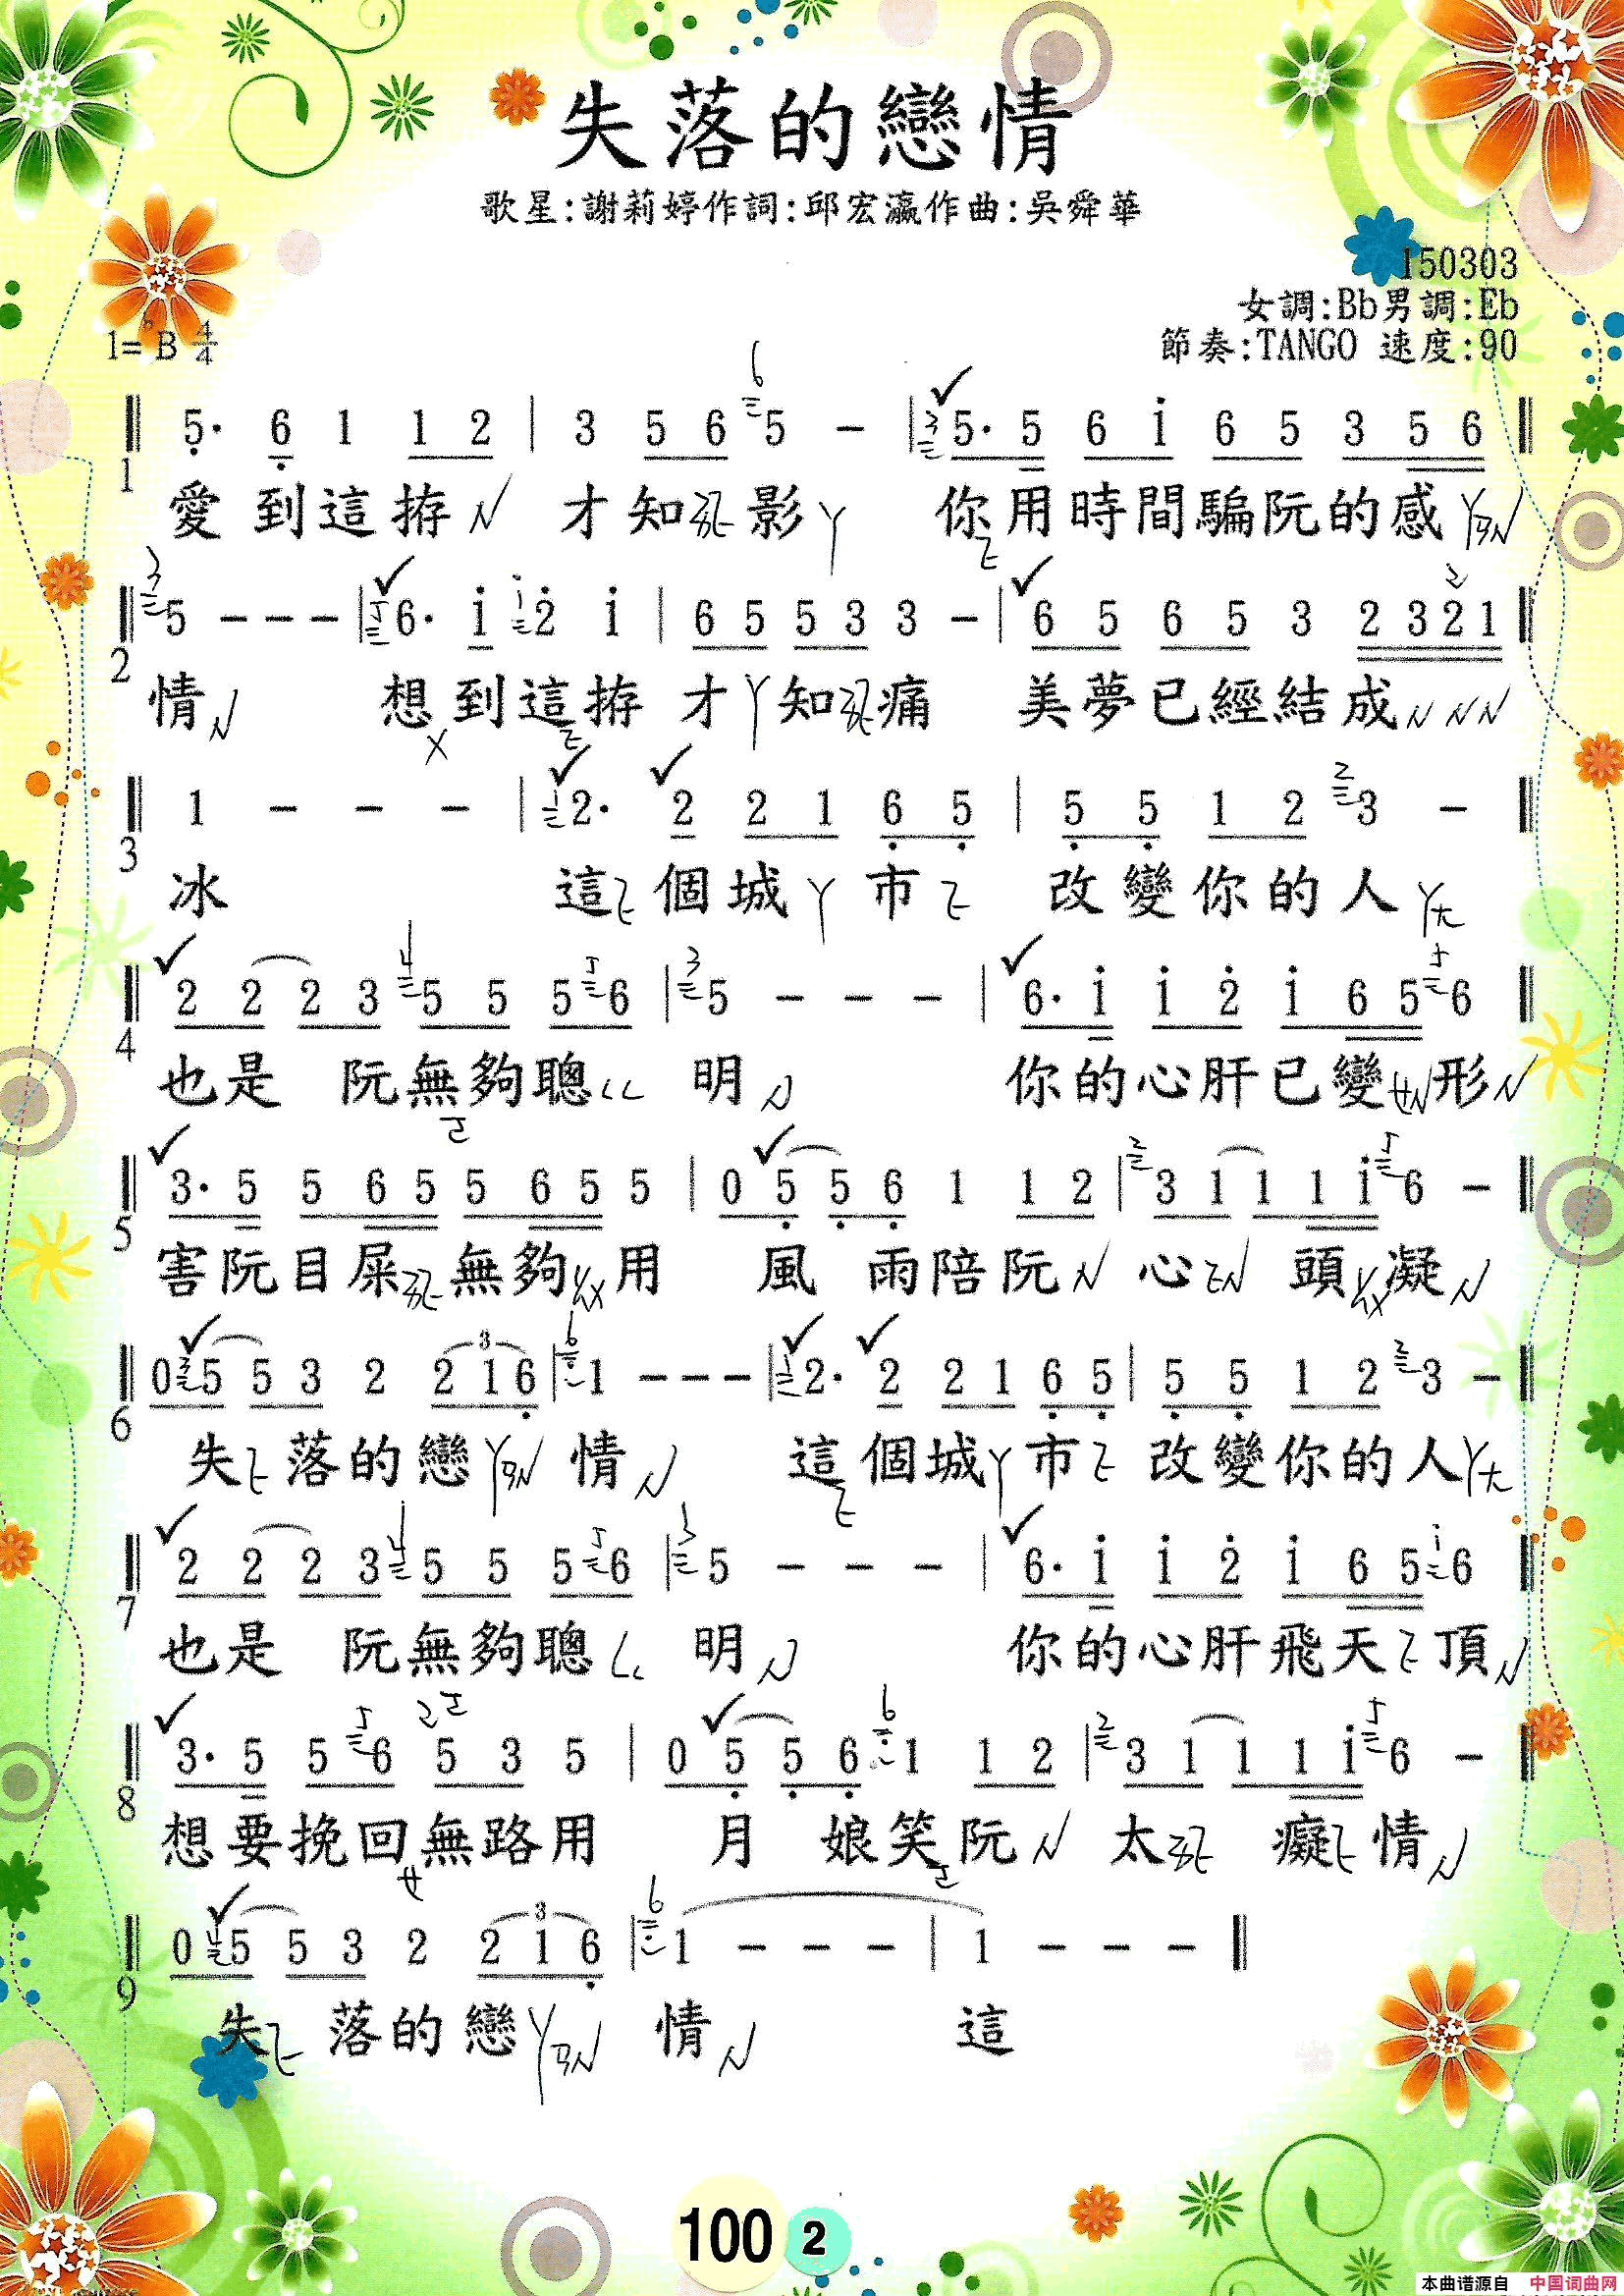 失落的戀情
歌星:謝莉婷作詞:邱宏瀛作曲:吳舜華
150303
女調:Bb男調:Eb
1=ᵇB 4/4 節奏:TANGO 速度:90
5̣· 6̣ 1 1 2 | 3 5 6 5 - | 5· 5 6 i 6 5 3 5 6
1 愛到這拵 才知影 你用時間騙阮的感
5 - - - | 6· i 2̇ i | 6 5 5 3 3 - | 6 5 6 5 3 2 3 2 1
2 情 想到這拵 才知痛 美夢已經結成
1 - - - | 2· 2 2 1 6̣ 5̣ | 5̣ 5̣ 1 2 3 -
3 冰 這個城市 改變你的人
2 2 2 3 5 5 5 6 | 5 - - - | 6· i i 2̇ i 6 5 6
4 也是 阮無夠聰 明 你的心肝已變形
3· 5 5 6 5 5 6 5 5 | 0 5̣ 5̣ 6̣ 1 1 2 | 3 1 1 1 i 6 -
5 害阮目屎無夠用 風 雨陪阮 心 頭凝
0 5 5 3 2 2 1 6̣ | 1 - - - | 2· 2 2 1 6̣ 5̣ | 5̣ 5̣ 1 2 3 -
6 失落的戀情 這個城市 改變你的人
2 2 2 3 5 5 5 6 | 5 - - - | 6· i i 2̇ i 6 5 6
7 也是 阮無夠聰 明 你的心肝飛天頂
3· 5 5 6 5 3 5 | 0 5̣ 5̣ 6̣ 1 1 2 | 3 1 1 1 i 6 -
8 想要挽回無路用 月 娘笑阮 太 癡情
0 5 5 3 2 2 1 6̣ | 1 - - - | 1 - - -
9 失 落的戀 情 這
100 2
本曲谱源自 中国词曲网